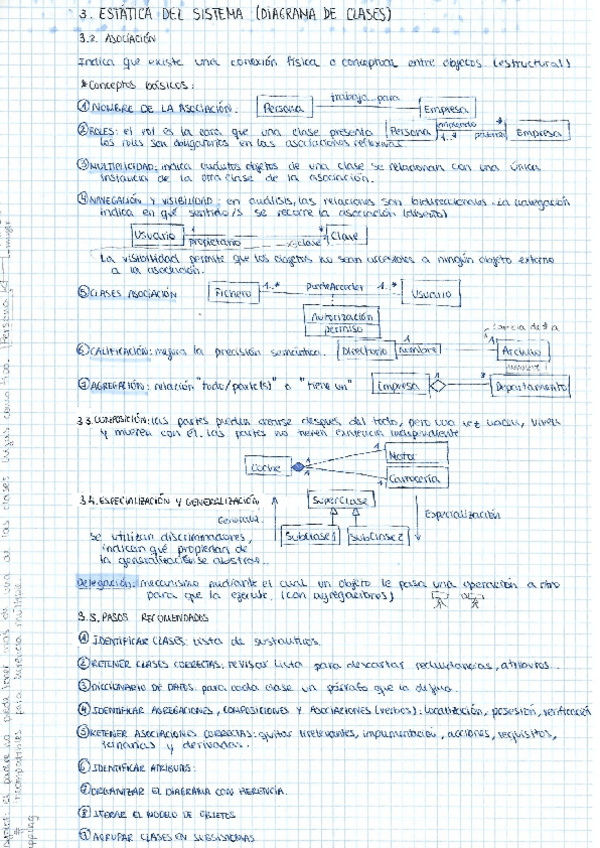 3. ESTÁTICA DEL SISTEMA (DIAGRAMA DE CLASES)
3.2. ASOCIACIÓN
Indica que existe una conexión física o conceptual entre objetos (estructural)
*Conceptos básicos:
① NOMBRE DE LA ASOCIACIÓN. Persona trabaja para Empresa
② ROLES: el rol es la cara que una clase presenta Persona empleado 1..* Empresa
los roles son obligatorios en las asociaciones reflexivas
③ MULTIPLICIDAD: indica cuántos objetos de una clase se relacionan con una única
instancia de la otra clase de la asociación.
④ NAVEGACIÓN Y VISIBILIDAD: en análisis, las relaciones son bidireccionales. La navegación
indica en qué sentido/s se recorre la asociación (diseño)
Usuario propietario clave Clave
La visibilidad permite que los objetos no sean accesibles a ningún objeto externo
a la asociación.
⑤ CLASES ASOCIACIÓN Fichero 1..* puedeAcceder 1..* Usuario
Autorización
permiso
⑥ CALIFICACIÓN: mejora la precisión semántica. Directorio nombre 1 Archivo
⑦ AGREGACIÓN: relación "todo/parte(s)" o "tiene un" Empresa Departamento
3.3. COMPOSICIÓN: las partes pueden crearse después del todo, pero una vez vivas, viven
y mueren con él. Las partes no tienen existencia independiente
Coche 1 Motor
Carrocería
3.4. ESPECIALIZACIÓN Y GENERALIZACIÓN
SuperClase
Especialización
Subclase1 Subclase2
Se utilizan discriminadores,
indican qué propiedad de
la generalización se abstrae.
Delegación: mecanismo mediante el cual un objeto le pasa una operación a otro
para que la ejecute. (con agregaciones)
3.5. PASOS RECOMENDADOS
① IDENTIFICAR CLASES: lista de sustantivos.
② RETENER CLASES CORRECTAS: revisar lista para descartar redundancias, atributos...
③ DICCIONARIO DE DATOS: para cada clase un párrafo que la defina.
④ IDENTIFICAR AGREGACIONES, COMPOSICIONES Y ASOCIACIONES (verbos): localización, posesión, verificación
⑤ RETENER ASOCIACIONES CORRECTAS: quitar irrelevantes, implementación, acciones, requisitos,
ternarias y derivadas.
⑥ IDENTIFICAR ATRIBUTOS.
⑦ ORGANIZAR EL DIAGRAMA CON HERENCIA.
⑧ ITERAR EL MODELO DE OBJETOS
⑨ AGRUPAR CLASES EN SUBSISTEMAS